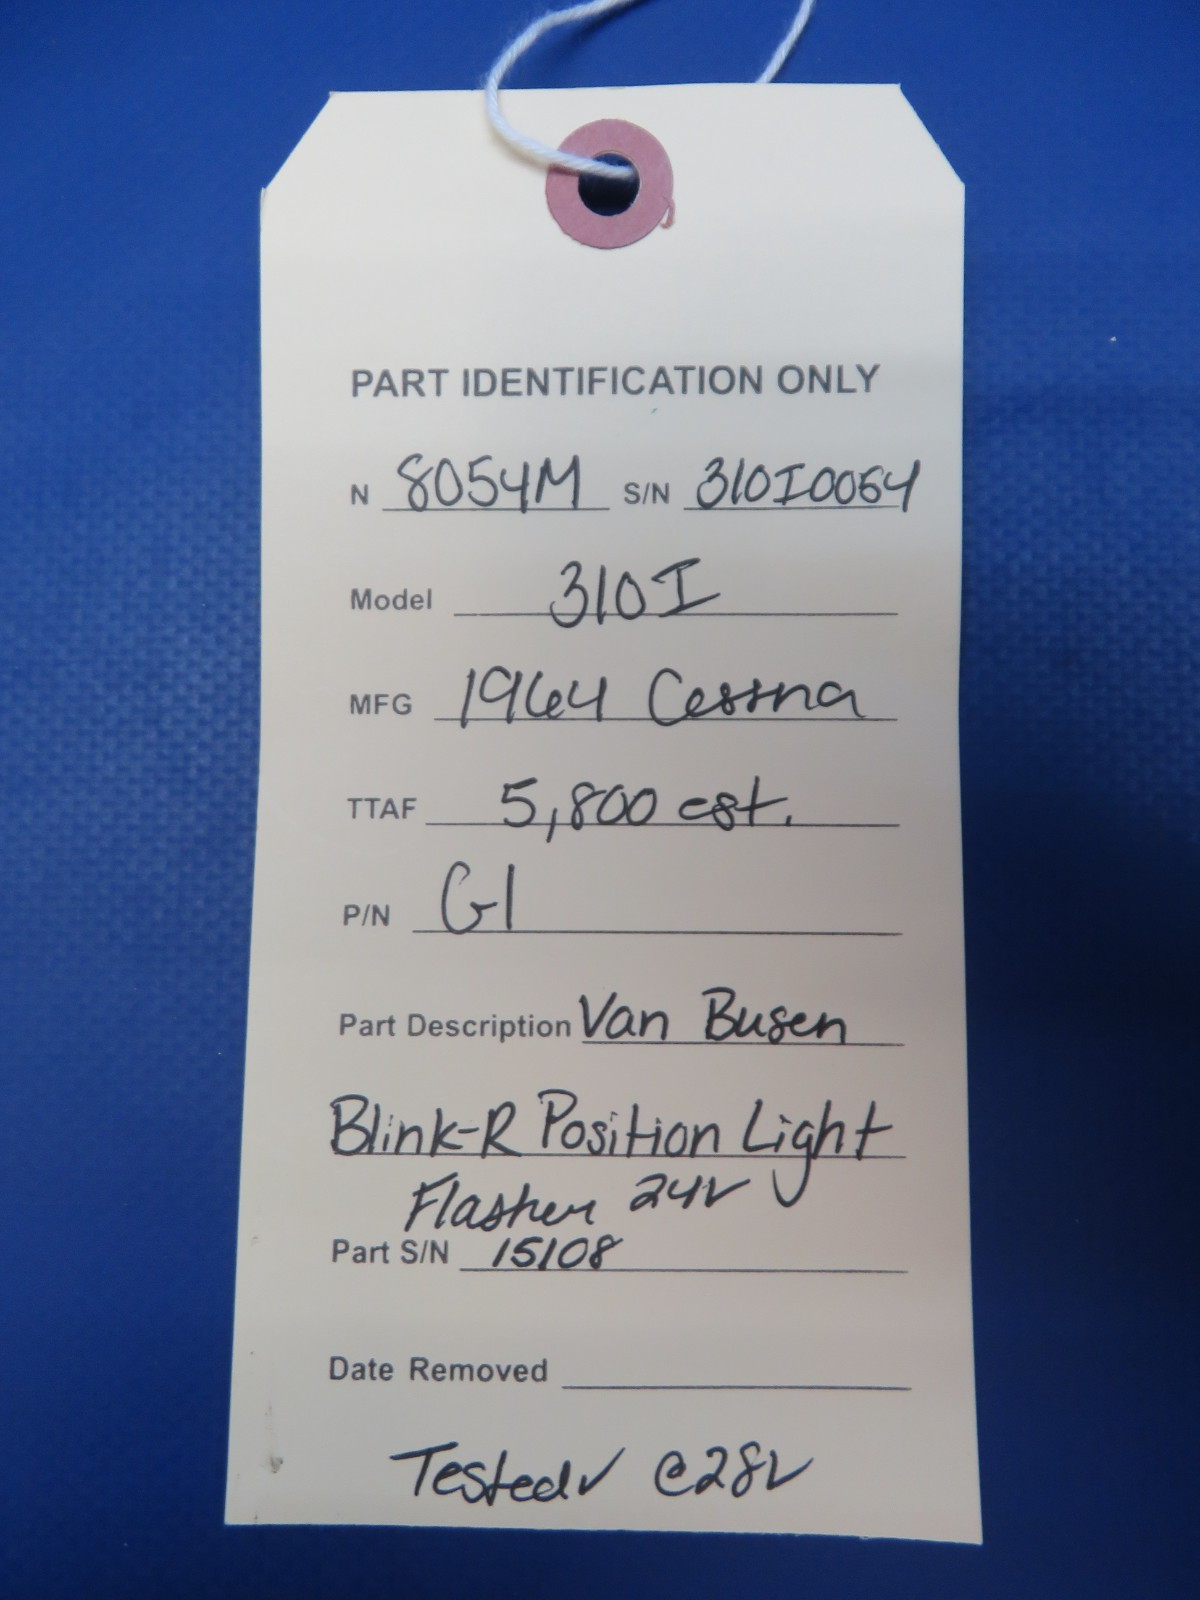 PART IDENTIFICATION ONLY
N 8054M S/N 310I0054
Model 310I
MFG 1964 Cessna
TTAF 5,800 est.
P/N G1
Part Description Van Busen
Blink-R Position Light
Flasher 24V
Part S/N 15108
Date Removed
Tested✓ @28V